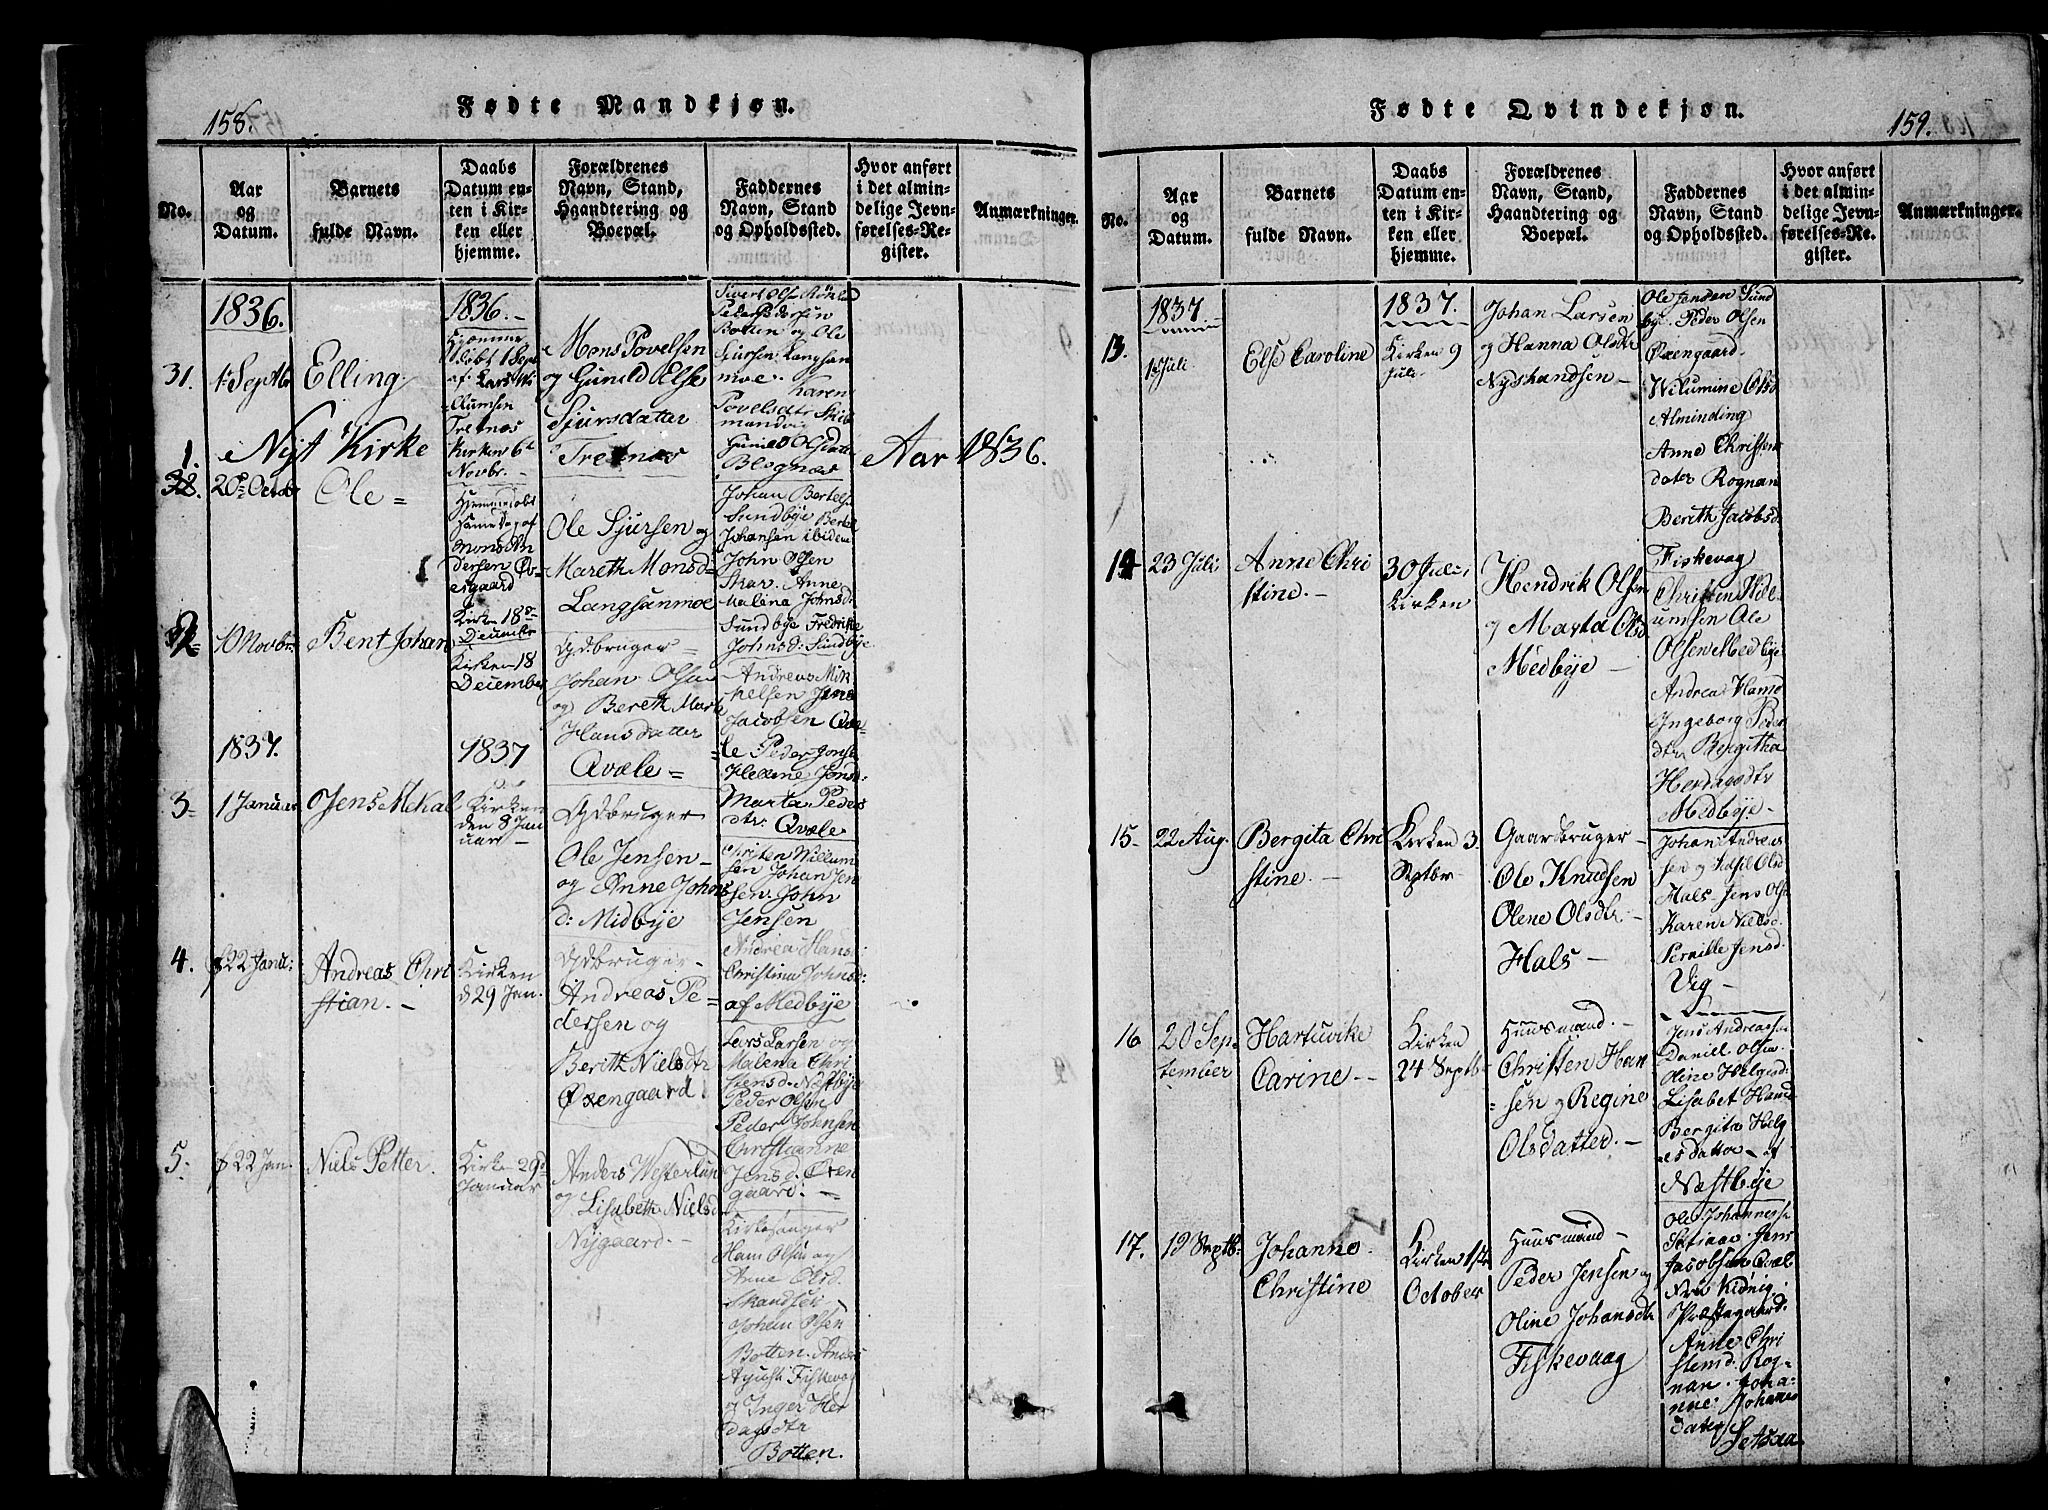 158.
Fødte Mandkjøn.
No.
Aar
og
Datum.
Barnets
fulde Navn.
Daabs
Datum en-
ten i Kir-
ken eller
hjemme.
Forældrenes
Navn, Stand,
Hgandtering og
Boepæl.
Faddernes
Navn, Stand
og Opholdssted.
Hvor anført
i det almin-
delige Jevn-
førelses-Re-
gister.
Anmærkninger.
1836.
31.
1 Septbr
Elling
1836.
Hjemme
af Lars
Tretnæs
Kirken 6te
Novbr.
Mons Povelsen
og Gunild Else
Sjursdatter
Tretnæs
Sivert Olsen
Botten og Ole
Sjursen Langsan
moe. Karen
Povelsdtr
Blegnæs
Nyt Kirke Aar 1836.
1.
32.
20de Octob
Ole =
Hjemmedøbt
Samedag af
Mons An
dersen Øx-
esgaard
Kirken 18de
December
Ole Sjursen og
Mareth Monsd=
Langsanmoe
Johan Bertels
Sundbye Bertel
Johansen ibidem
John Olsen
Skar. Anne
Malena Johnsd:
Sundbye Fredrikke
Johnsd: Sundbye
2
10 Novbr.
Bent Johan
Kirken 18
December
Gdbruger
Johan Olsen
og Bereth Marte
Hansdatter
Qvæle =
Andreas Mik
kelsen Jens
Jacobsen Qvæ-
=le Peder Jonse
Helene Jonsd:
Marta Peders
dtr: Qvæle
1837.
3-
1 Januar
Jens Mekal
1837
Kirken
den 8 Jan
uar -
Gdbruger
Ole Jensen -
og Anne Johns
d: Midbye
Christen Willum
sen Johan Jen
sen. John
Jensen
Andrea Hans
Christina Johnsd:
af Medbye
4.
22 Janu:
Andreas Chri
stian. -
Kirken
d 29 Jan.
Gdbruger -
Andreas Pe=
dersen og
Berith Nielsdtr
Øxengaard.
Lars Larsen og
Malena Chri
stensd. Næstbye
Peder Olsen
Peder Johnsen
Christianne
Jensd. Øxen
gaard. -
5.
22 Jan.
Niels Petter.
Kirken 29de
Januar
Anders Westerlund
og Lisabeth Nielsd.
Nygaard. -
Kirkesanger
Hans Olsen og
Anne Olsd.
Skandsen
Johan Olsen
Botten. Anders
August Fiskevog
og Inger Her
dagsdtr
Botten.
Fødte Qvindekjøn.
159.
No.
Aar
og
Datum.
Barnets
fulde Navn.
Daabs
Datum en-
ten i Kir-
ken eller
hjemme.
Forældrenes
Navn, Stand,
Haandtering og
Boepæl.
Faddernes
Navn, Stand
og Opholdssted.
Hvor anført
i det almin-
delige Jevn-
førelses-Re-
gister.
Anmærkninger.
1837.
13.
1 Juli
Else Caroline
1837.
Kirken 9
Juli.
Johan Larsen
og Hanna Olsdtr
Nyskandsen -
Ole Jensen Sund
bye Peder Olsen
Øxengaard.
Wilumine Olsd
Alminding
Anne Christens
dater Rognan
Berith Jacobsd.
Fiskevag
14
23 Juli
Anne Chri
stine. -
30 Juli
Kirken
Hendrik Olsen
og Marta Olsd
Medbye -
Christen Will-
umsen Ole
Olsen Medbye
Andrea Hansd
Ingeborg Peder
dtr Bergitha
Herdagsdtr
Medbye -
15-
22 Aug.
Bergita Chri
stine. -
Kirken 3
Septbr
Gaardbruger -
Ole Knudsen
Olene Olsdtr. -
Hals -
Johan Andreas
sen og Sidsel Olsd
Hals - Jens Ols
Karen Nielsd.
Pernille Jensd.
Vig -
16
20 Sep.
tember
Hartuvike
Carine. -
Kirken
24 Septb-
Huusmand. -
Christen Han
=sen og Regine
Olsdatter. -
Jens Andreassen
Daniel Olsen.
Oline Helgesd.
Lisabet Hansd
Bergita Helg
esdatter - af
Næstbye
17.
19 Septb-
Johanne
Christine
Kirken 1ste
October
Huusmand -
Peder Jensen og
Oline Johansdtr
Fiskevaag
Ole Johannesse
Setsaae. Jens
Jacobsen Qvæl
Fru Kiönig
Præstegaard.
Anne Chri
stensd. Rog-
nan. Joha-
nne Johannes
dater
Setsaa